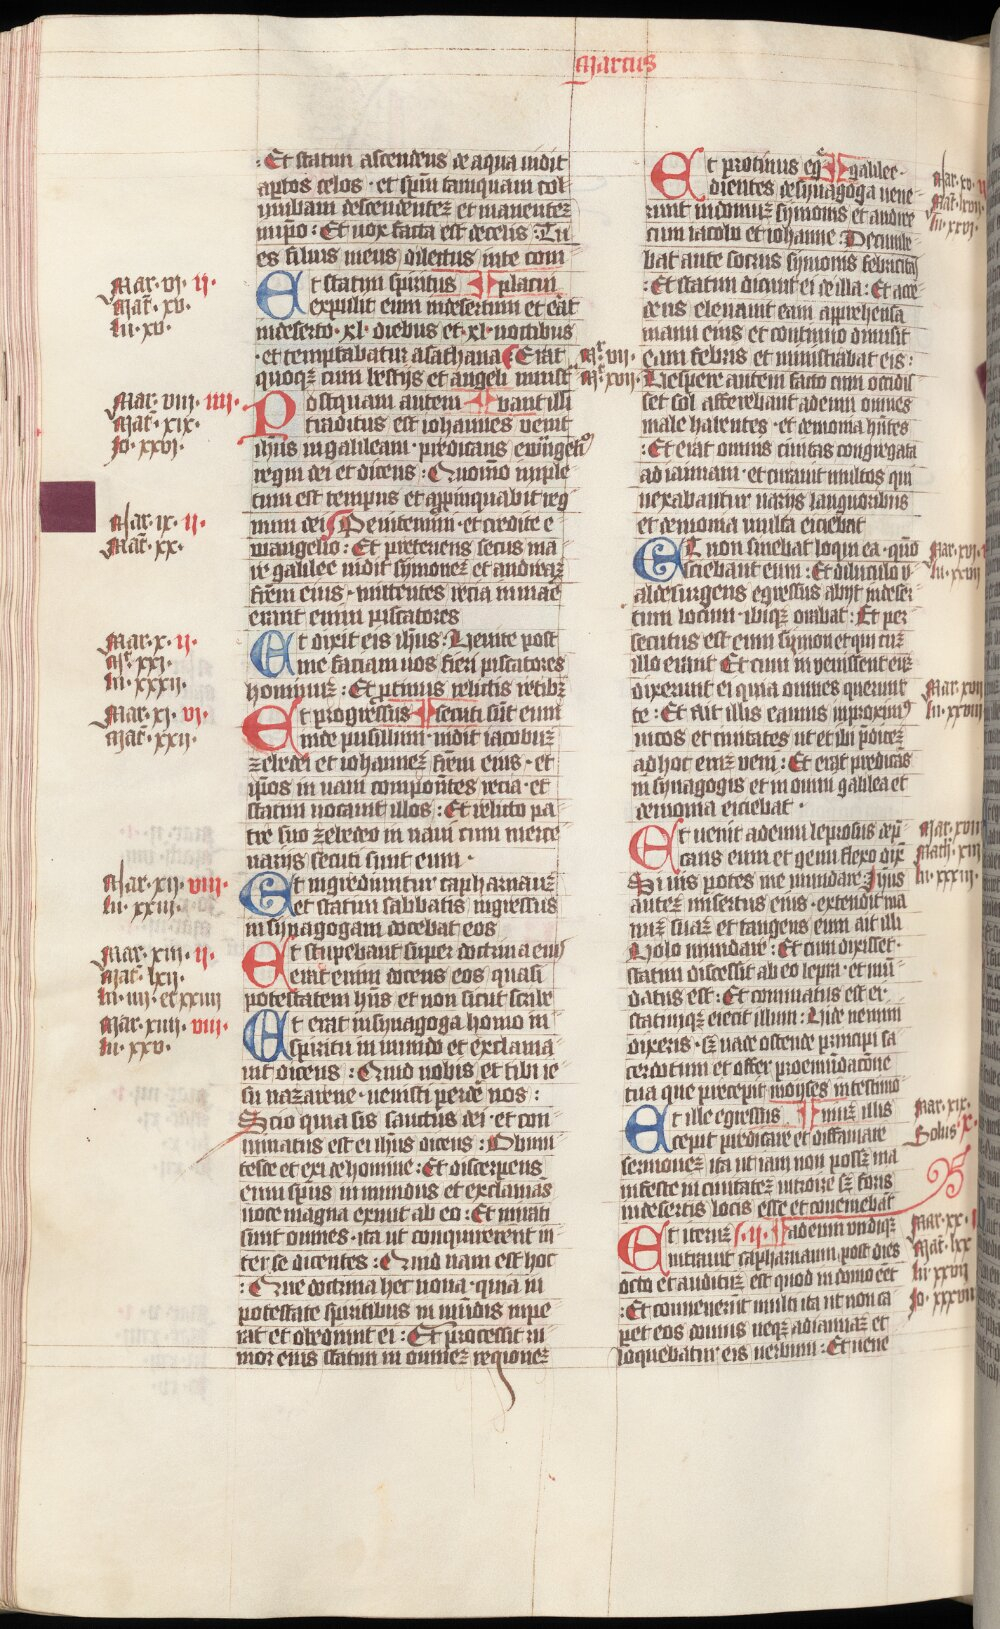 Marcus
Et statim ascendens de aqua vidit
aptos celos · et spm tamquam col
umbam descendentez et manentez
in ipo : Et vox facta est de celis : Tu
es filius meus dilectus in te com
Et statim spiritus placui
expulit eum in desertum et erat
in deserto · xl · diebus et · xl · noctibus
· et temptabatur a sathana Erat
quoqz cum bestijs et angeli minist
Postquam autem bant illi
traditus est iohannes venit
ihus in galileam · predicans ewangeliu
regni dei et dicens : Quoniam imple
tum est tempus et appinquabit reg
num dei Penitemini · et credite e
wangelio : Et preteriens secus ma
re galilee vidit symonez et andreaz
frem eius · mittentes recia in mare
erant enim piscatores
Et dixit eis ihus : Venite post
me faciam vos fieri piscatores
hominuz : Et ptinus relictis retibz
Et progressus secuti sut eum
inde pusillum · vidit iacobuz
zebedei et iohannez frem eius · et
ipos in navi componetes recia · et
statim vocavit illos : Et relicto pa
tre suo zebedeo in navi cum merce
narijs secuti sunt eum ·
Et ingrediuntur capharnauz
et statim sabbatis ingressus
in synagogam docebat eos
Et stupebant super doctrina eius
erat enim docens eos quasi
potestatem hns et non sicut scribe
Et erat in synagoga homo in
spiritu in mundo et exclama
vit dicens : Quid nobis et tibi ie
su nazarene · venisti perde nos :
Scio quia sis sanctus dei · et com
minatus est ei ihus dicens : Obmu
tesce et exi de homine : Et discerpens
eum spus in mundus et exclamas
voce magna exivit ab eo : Et mirati
sunt omnes · ita ut conquirerent in
ter se dicentes : Quid nam est hoc
: Que doctrina hec nova · quia in
potestate spiritibus in mudis impe
rat et obediunt ei : Et processit ru
mor eius statim in omnez regionez
Mar · vi · ii ·
Mat · xv ·
lu · xv ·
Mar · viii · iiii ·
Mat · xix ·
Jo · xxvi ·
Mar · ix · ii ·
Mat · xx ·
Mar · x · ii ·
Mt · xxi ·
lu · xxxii ·
Mar · xi · vi ·
Mat · xxii ·
Mar · xii · viii ·
lu · xxiii ·
Mar · xiii · ii ·
Mat · lxii ·
lu · iiii · et xxiiii
Mar · xiiii · viii ·
lu · xxv ·
Mr · vii ·
Mt · xvii ·
Et protinus egre galilee ·
dientes de synagoga vene
runt in domuz symonis et andree
cum iacobo et iohanne : Decumbe
bat autem socrus symonis febricitas
: Et statim dicunt ei de illa : Et acce
dens elevavit eam apprehensa
manu eius et continuo dimisit
eam febris et ministrabat eis :
Vespere autem facto cum occidis
set sol afferebant ad eum omnes
male habentes · et demonia hntes
: Et erat omnis civitas congregata
ad ianuam · et curavit multos qui
vexabantur varijs languoribus
et demonia multa eiciebat
Et non sinebat loqui ea · quo
sciebant eum : Et diluculo v
alde surgens egressus abijt in deser
tum locum · ibiqz orabat : Et per
secutus est eum symon et qui cuz
illo erant Et cum in venissent euz
dixerunt ei quia omnes querunt
te : Et Ait illis eamus in proximos
vicos et civitates ut et ibi pdicez
ad hoc eniz veni : Et erat predicas
in synagogis et in omni galilea et
demonia eiciebat ·
Et venit ad eum leprosus dep
cans eum et genu flexo dix
Si vis potes me mundare Ihus
autez misertus eius · extendit ma
nuz suaz et tangens eum ait illi
Volo mundare : Et cum dixisset ·
statim discessit ab eo lepra · et mu
datus est : Et comminatus est ei ·
statimqz eiecit illum : Vide nemini
dixeris · sz vade ostende principi sa
cerdotum et offer pro emudacone
tua que precepit moyses in testimo
Et ille egressus niuz illis
cepit predicare et diffamare
sermonez ita ut iam non possz ma
nifeste in civitatez introire sz foris
in desertis locis esse et conveniebat
Et iteruz · ii · ad eum undiqz
intravit capharnaum post dies
octo et audituz est quod in domo eet
: Et convenerut multi ita ut non ca
pet eos domus neqz ad ianuaz et
loquebatur eis verbum : Et vene
Mar · xv ·
Mat · lxvii ·
lu · xxvi ·
Mar · xvi ·
lu · xxvii
Mar · xvii
lu · xxviii
Mar · xviii
Math · xiii
lu · xxxiii ·
Mar · xix ·
Solus · x ·
Mar · xx ·
Mat · lxx
lu · xxxvii
Jo · xxxviii